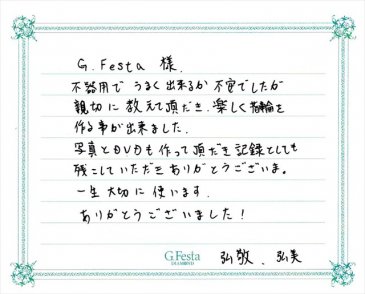 G.Festa 様.
不器用で うまく出来るか 不安でしたが
親切に 教えて頂だき、楽しく指輪を
作る事が出来ました.
写真とDVDも 作って頂だき 記録としても
残こしていただき ありがとうございま。
一生大切に 使います.
ありがとうございました!
G.Festa
DIAMOND
弘敬、弘美